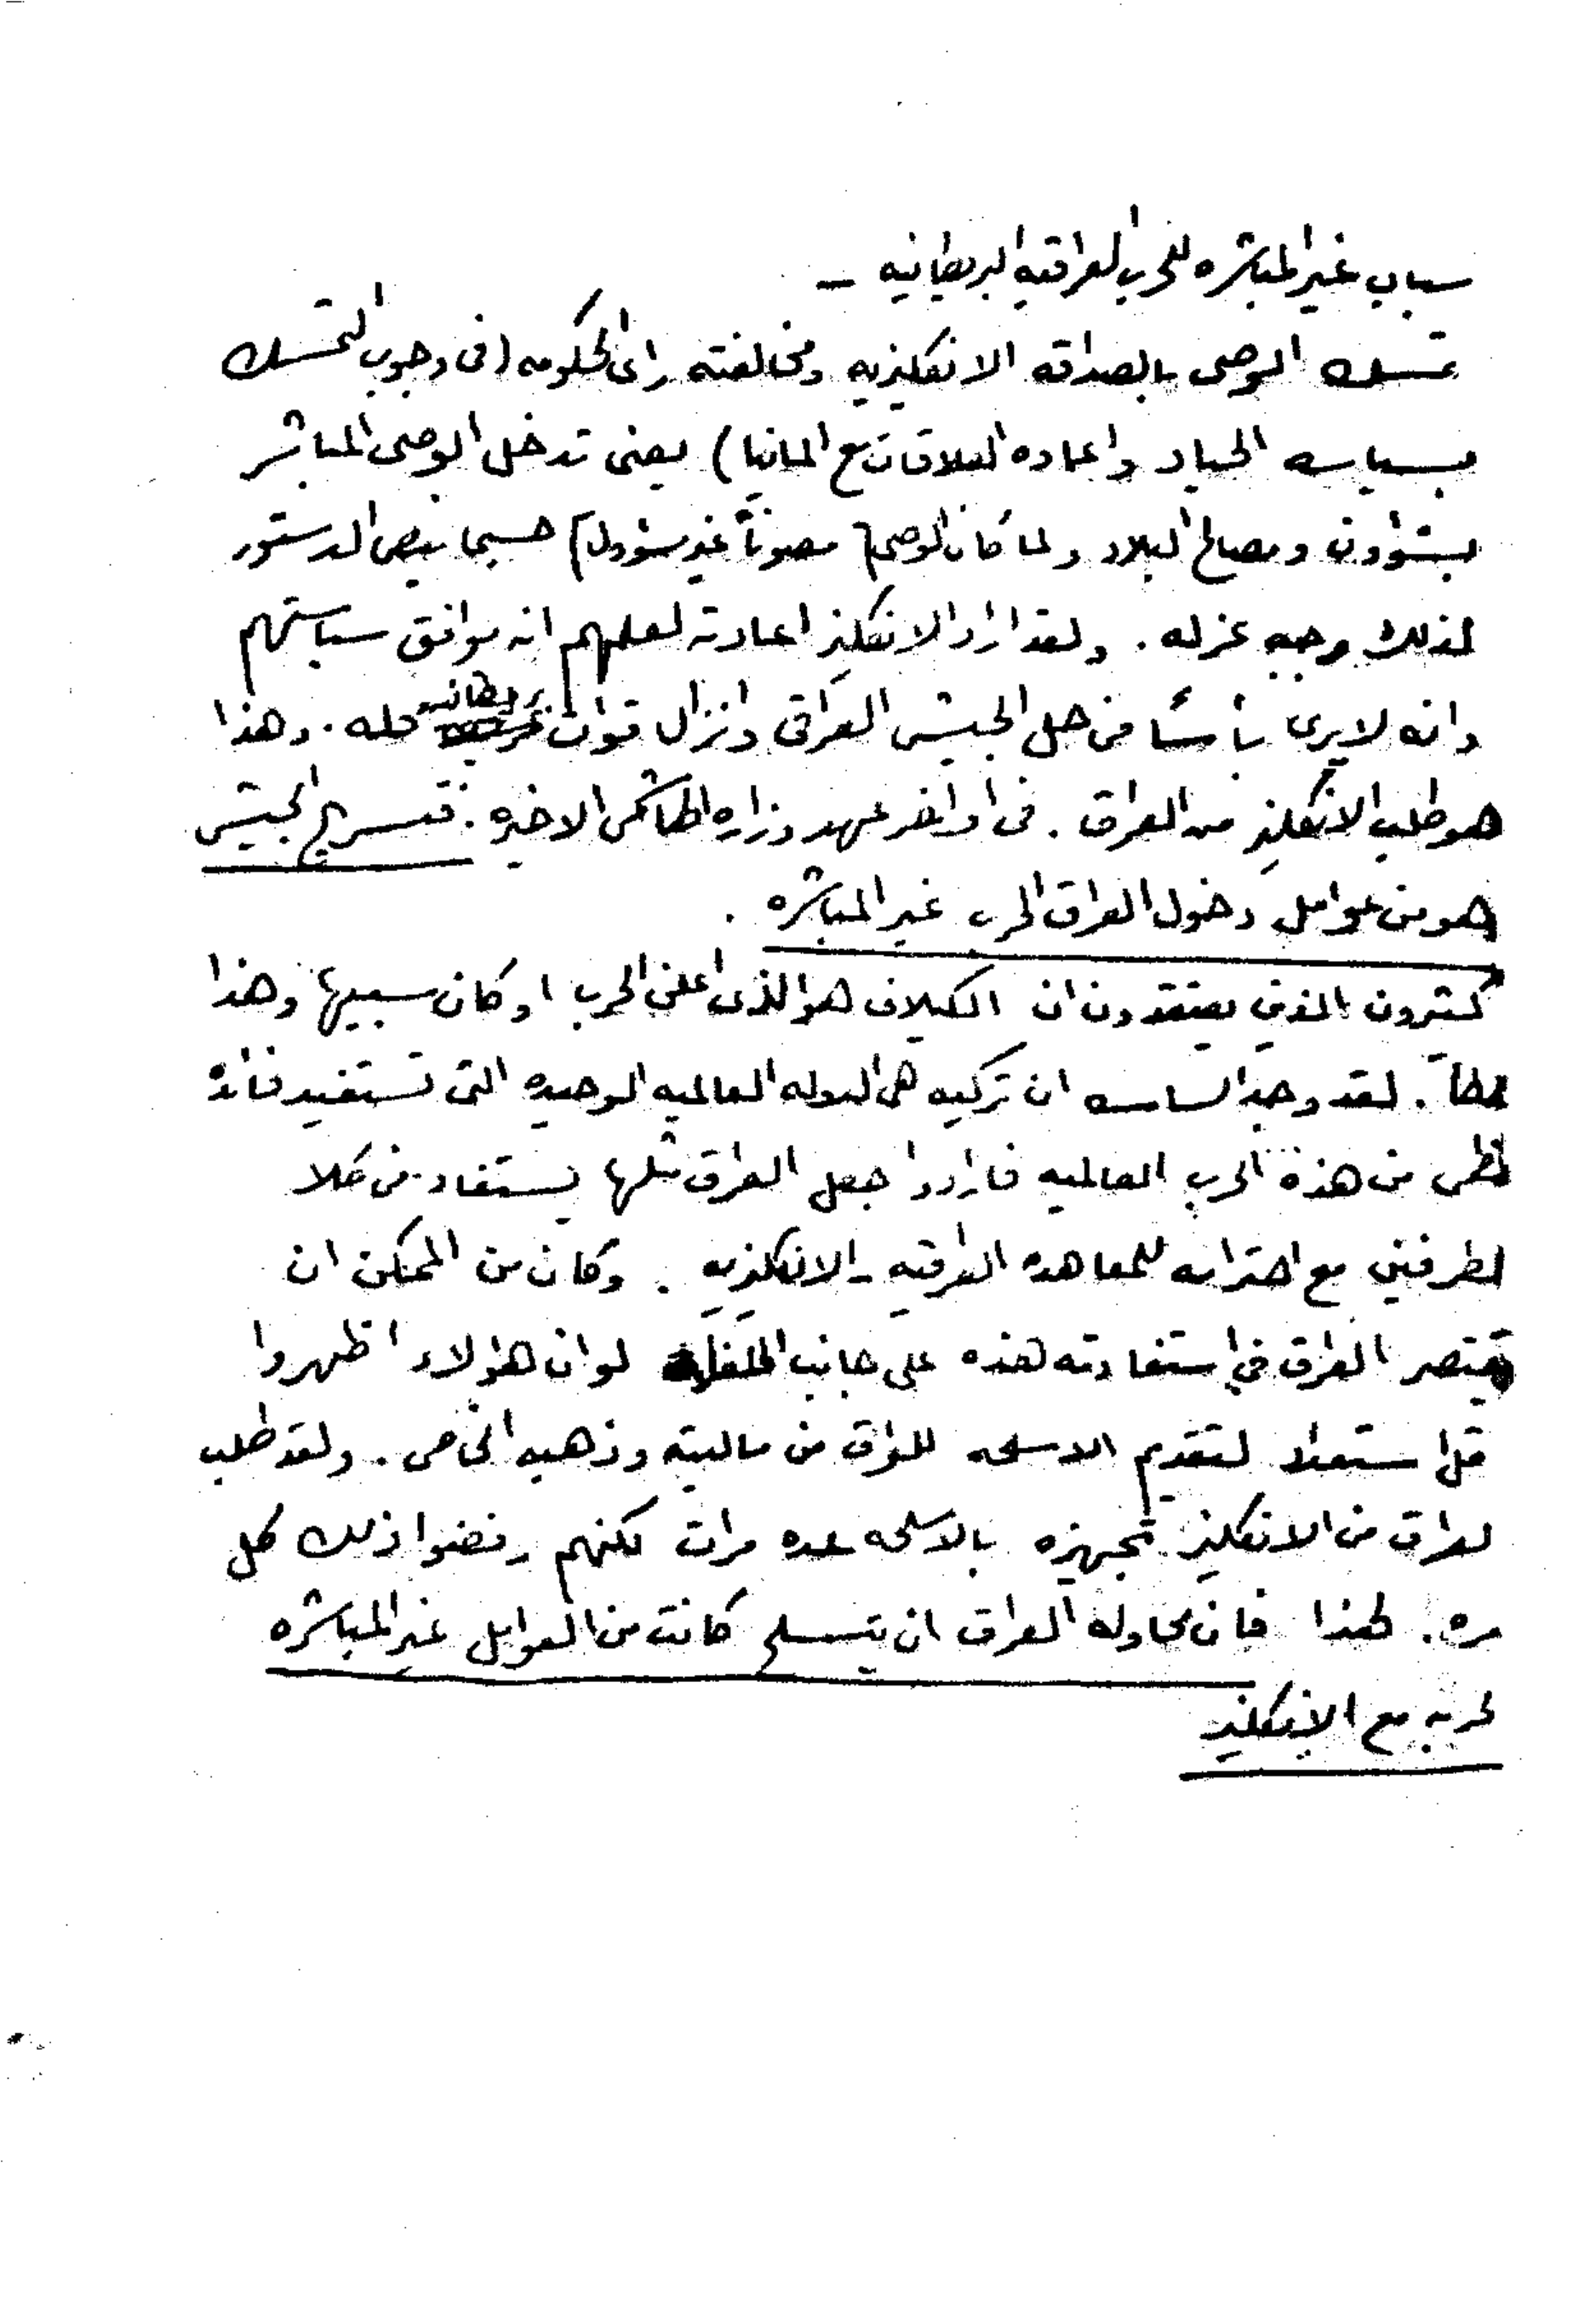 سباب غير المباشره للحرب العراقيه البريطانيه –
تمسك الوصي بالصداقه الانكليزيه ومخالفته راي الحكومه (في وجوب التمسك
بسياسه الحياد واعاده العلاقات مع المانيا) يعني تدخل الوصي المباشر
بشؤون ومصالح البلاد ولما كان الوصي (مصوناً غير مسؤول) حسبما ينص الدستور
لذلك وجب عزله. ولقد اراد الانكليز اعادته لعلمهم انه موافق سياستهم
وانه لا يرى بأسًا في حل الجيش العراقي وانزال قوات بريطانيه محله. وهذا
هو طلب الانكليز من العراق. في اواخر عهد وزاره الهاشمي الاخيره. فتسريح الجيش
هو من عوامل دخول العراق الحرب غير المباشره.
كثيرون الذين يعتقدون ان الكيلاني هو الذي اعلن الحرب او كان سببها وهذا
خطأ. لقد وجد الساسه ان تركيه هي الدوله العالميه الوحيده التي تستفيد فائده
عظمى من هذه الحرب العالميه فارادوا جعل العراق مثلها يستفاد من كلا
لطرفين مع احترامه للمعاهده العراقيه - الانكليزيه. وكان من الممكن ان
يقتصر العراق في استفادته هذه على جانب الحلفاء لو ان هؤلاء اظهروا
قل استعداد لتقديم الاسلحه للعراق من ماليته وذهبه الخاص. ولقد طلب
لعراق من الانكليز تجهيزه بالاسلحه عده مرات لكنهم رفضوا ذلك كل
مره. لهذا فان محاوله العراق ان يتسلح كانت من العوامل غير المباشره
لحربه مع الانكليز